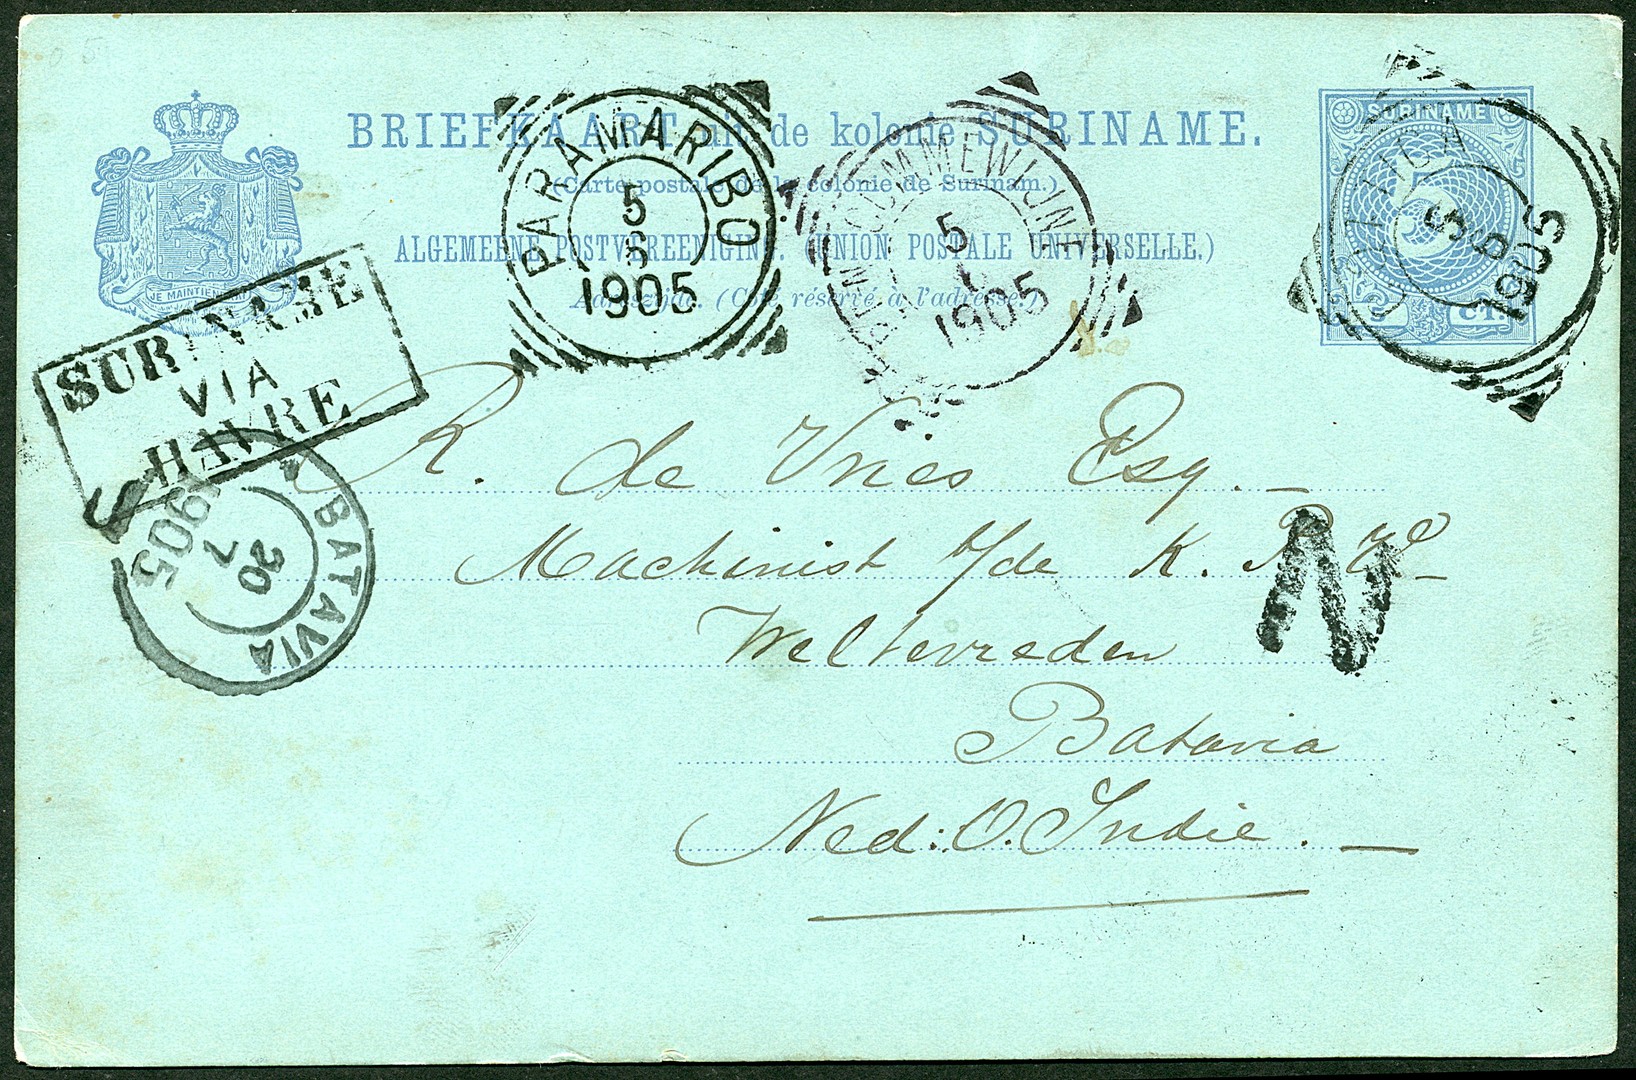 BRIEFKAART uit de kolonie SURINAME.
(Carte postale de la colonie de Surinam.)
ALGEMEENE POSTVEREENIGING. (UNION POSTALE UNIVERSELLE.)
Adreszijde. (Côté réservé à l'adresse.)
JE MAINTIENDRAI
SURINAME
5 CT.
PARAMARIBO
5
1905
COMMEWIJNE
5
1905
5
1905
SURINAME
VIA
HAVRE
BATAVIA
30
7
1905
N
R. de Vries Esq.
Machinist b/de K. P.
Weltevreden
Batavia
Ned: O. Indie.